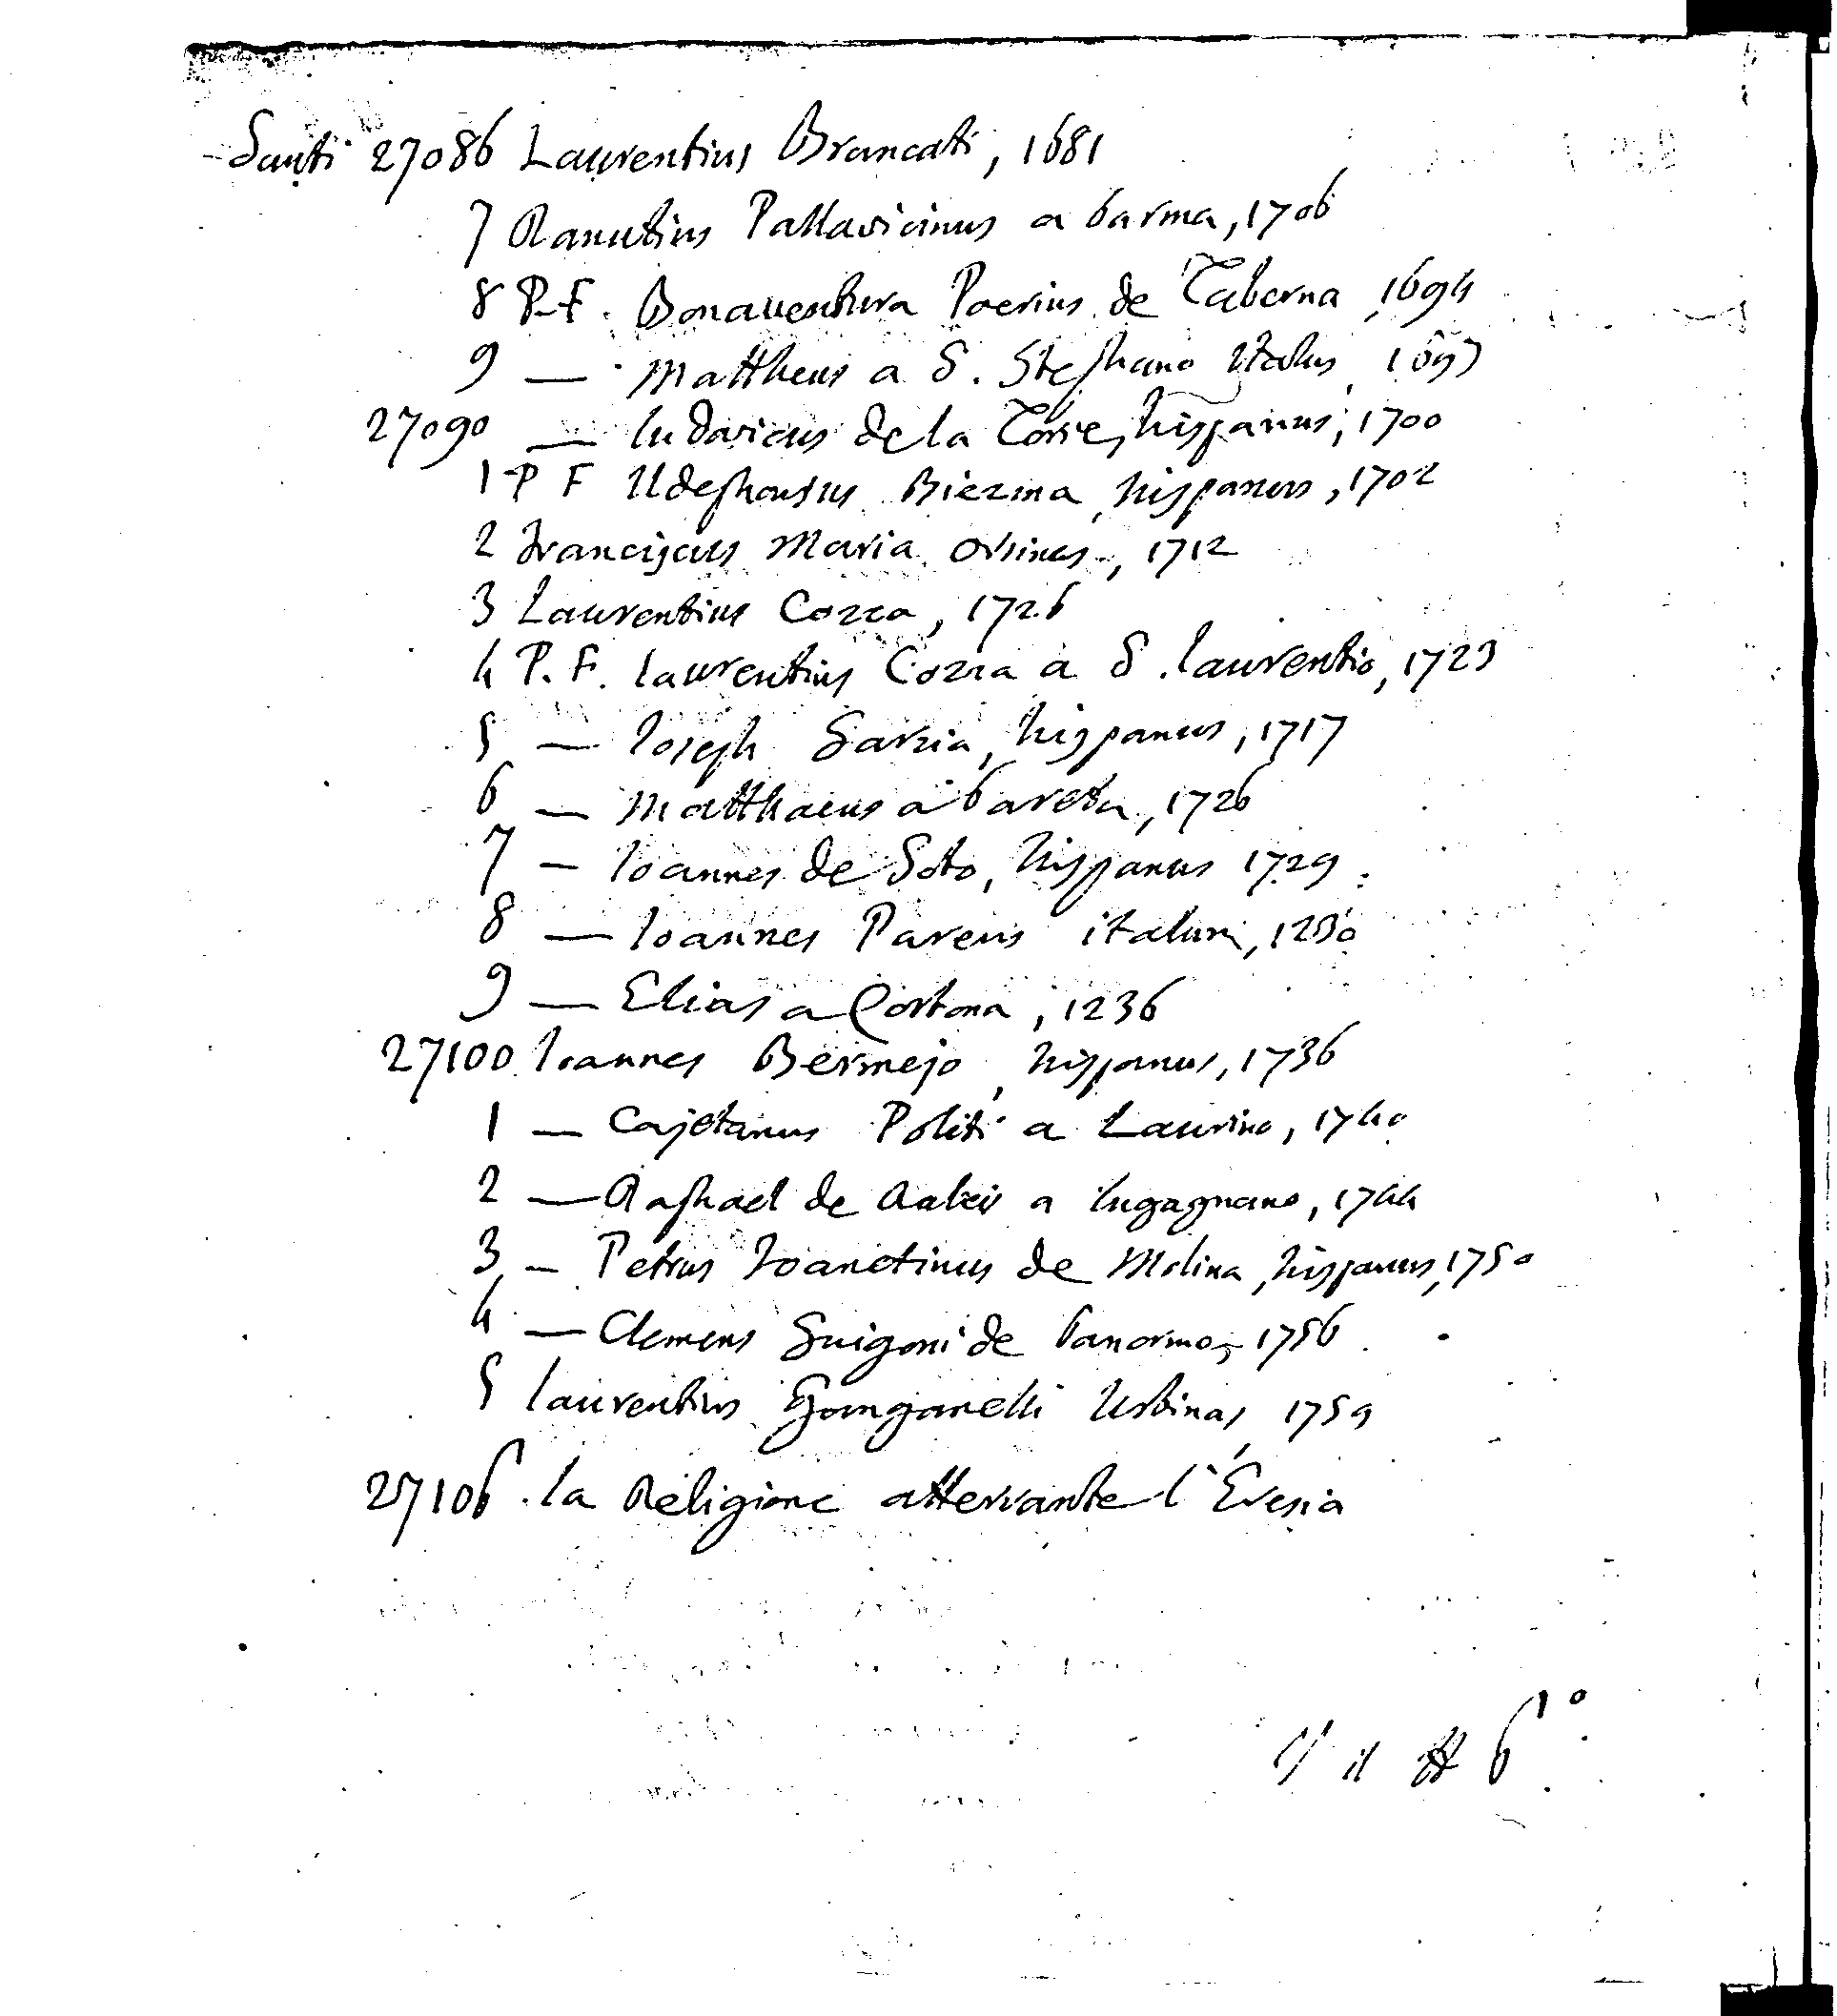 Santi 27086 Laurentius Brancati, 1681
7 Ranutius Pallavicinus a Parma, 1706
8 P.F. Bonaventura Poerius de Taberna, 1694
9 — Mattheus a S. Stephano Italus, 1697
27090 — Ludovicus de la Torre, hispanus, 1700
1 P F Ildephonsus Biezma, hispanus, 1702
2 Franciscus Maria Orsinus, 1712
3 Laurentius Cozza, 1726
4 P.F. Laurentius Cozza a S. Laurentio, 1723
5 — Joseph Garzia, hispanus, 1717
6 — Matthaeus a Pareta, 1726
7 — Joannes de Soto, hispanus 1729
8 — Joannes Parens italus, 1230
9 — Elias a Cortona, 1236
27100 Joannes Bermejo, hispanus, 1736
1 — Cajetanus Politi a Laurino, 1740
2 — Raphael de a Lugagnano, 1744
3 — Petrus Joanetinus de Molina, hispanus, 1750
4 — Clemens Guigoni de Panormo, 1756
5 Laurentius Ganganelli Urbinas, 1759
27106 La Religione atterrante l'Eresia